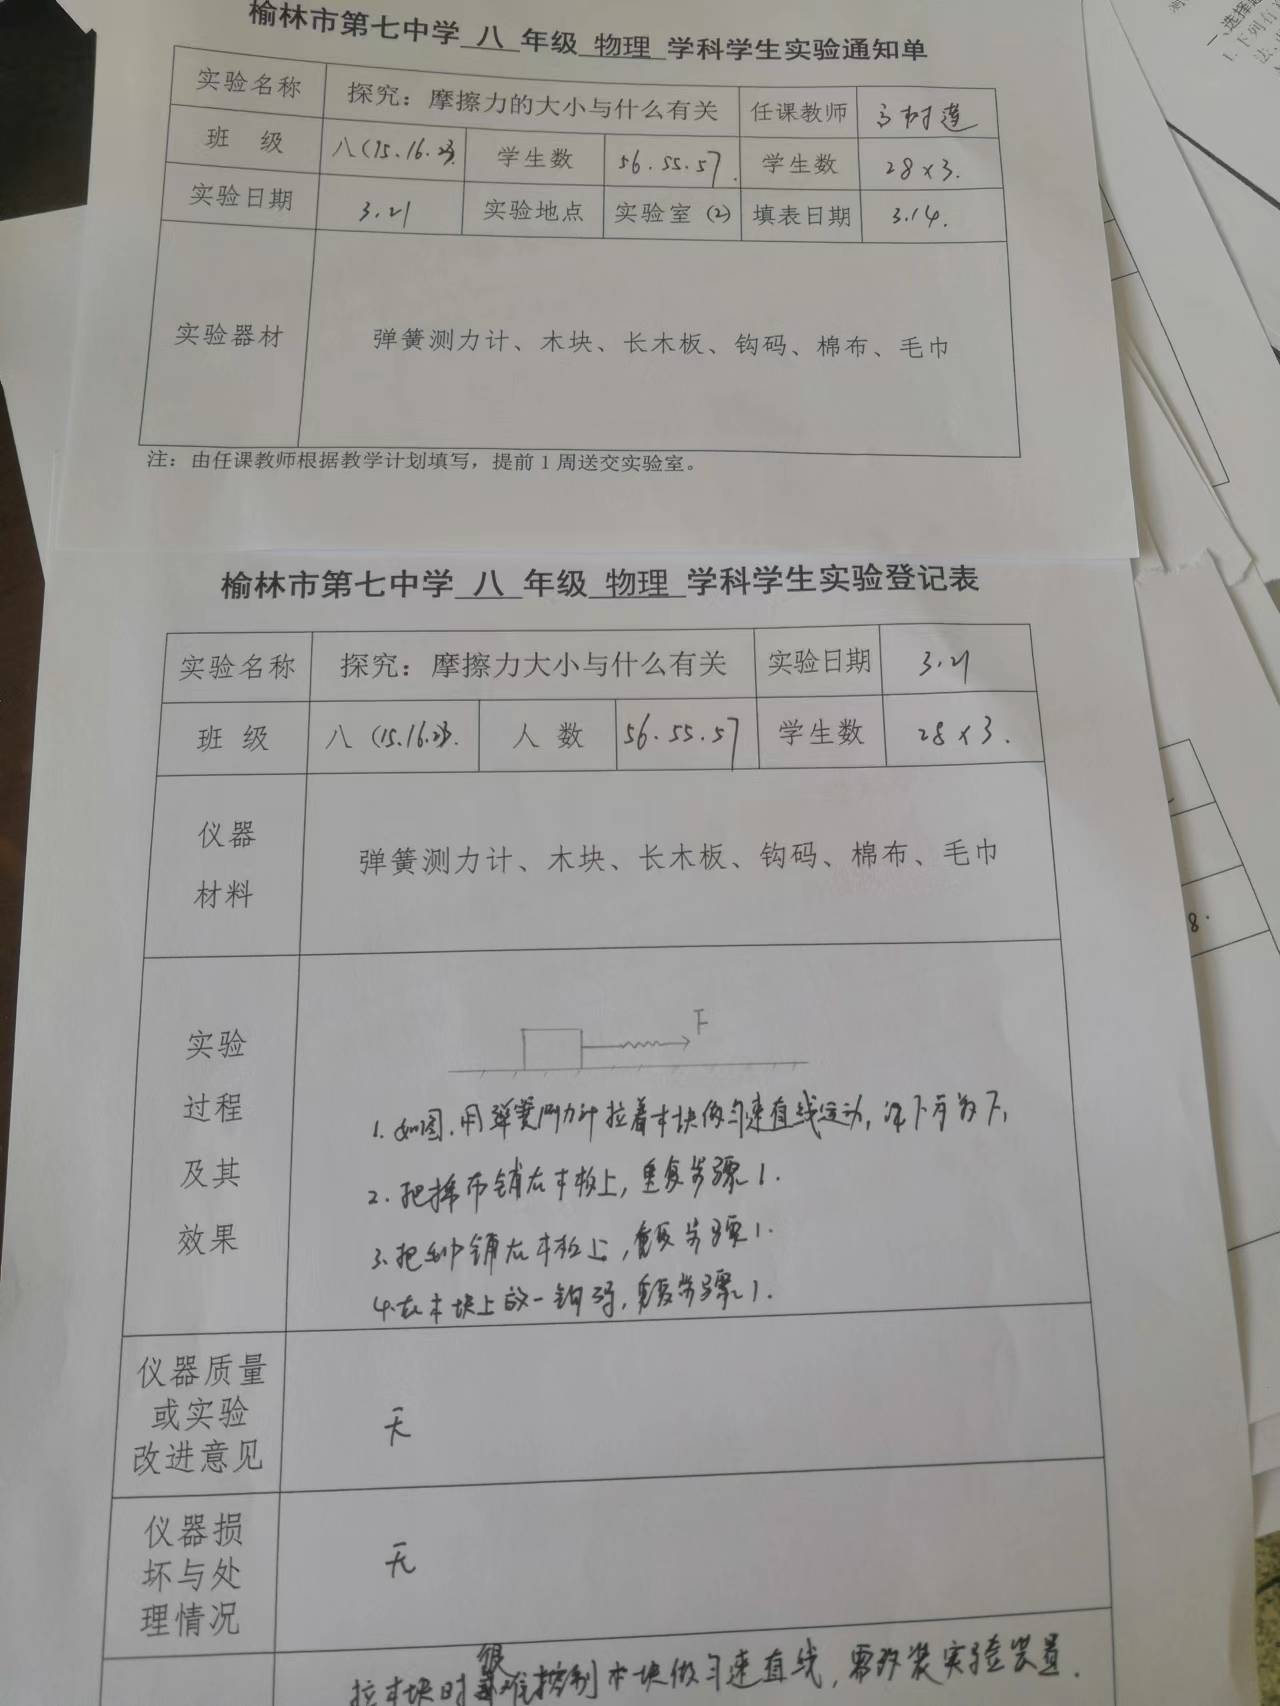 榆林市第七中学 八 年级 物理 学科学生实验通知单
实验名称 探究：摩擦力的大小与什么有关 任课教师
班 级 八(15.16.23). 学生数 56.55.57. 学生数 28×3.
实验日期 3.21 实验地点 实验室(2) 填表日期 3.14.
实验器材 弹簧测力计、木块、长木板、钩码、棉布、毛巾
注：由任课教师根据教学计划填写，提前1周送交实验室。
榆林市第七中学 八 年级 物理 学科学生实验登记表
实验名称 探究：摩擦力大小与什么有关 实验日期 3.21
班 级 八(15.16.23). 人 数 56.55.57 学生数 28×3.
仪器
材料
弹簧测力计、木块、长木板、钩码、棉布、毛巾
实验
过程
及其
效果
F
1.如图.用弹簧测力计拉着木块做匀速直线运动,
2.把棉布铺在木板上,重复步骤1.
3.把毛巾铺在木板上,重复步骤1.
4.在木块上放一钩码,重复步骤1.
仪器质量
或实验
改进意见
无
仪器损
坏与处
理情况
无
拉木块时很难控制木块做匀速直线,需改装实验装置.
8.